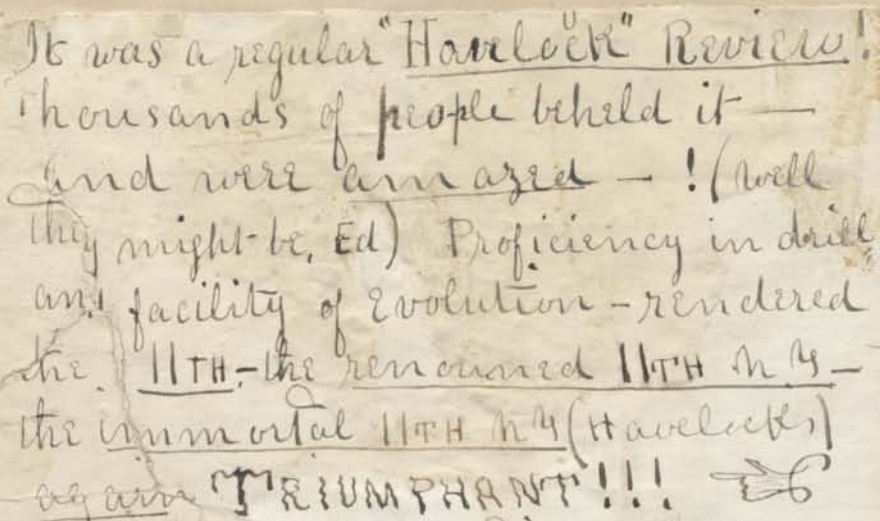 It was a regular "Havelock" Review!
thousands of people beheld it —
and were amazed — ! (well
they might be, Ed) Proficiency in drill
and facility of Evolution — rendered
the 11TH — the renowned 11TH N Y —
the immortal 11TH N Y (Havelocks)
again TRIUMPHANT!!!